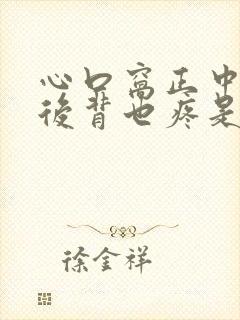 心口窝正中
后背也疼是
徐金祥